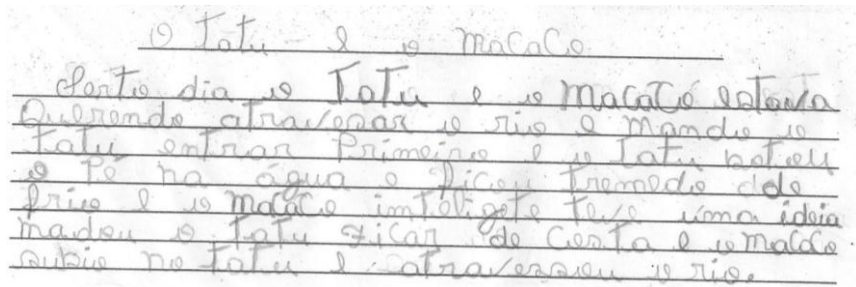 O Tatu e o macaco
Serto dia o Tatu e o macaco estava
Querendo atravesar o rio e mando o
Tatu entrar Primeiro e o Tatu botou
o Pé na água e ficou tremedo de
friu e o macaco inteligete teve uma ideia
madou o Tatu ficar de Costa e o macaco
subiu no Tatu e atravessou o rio.